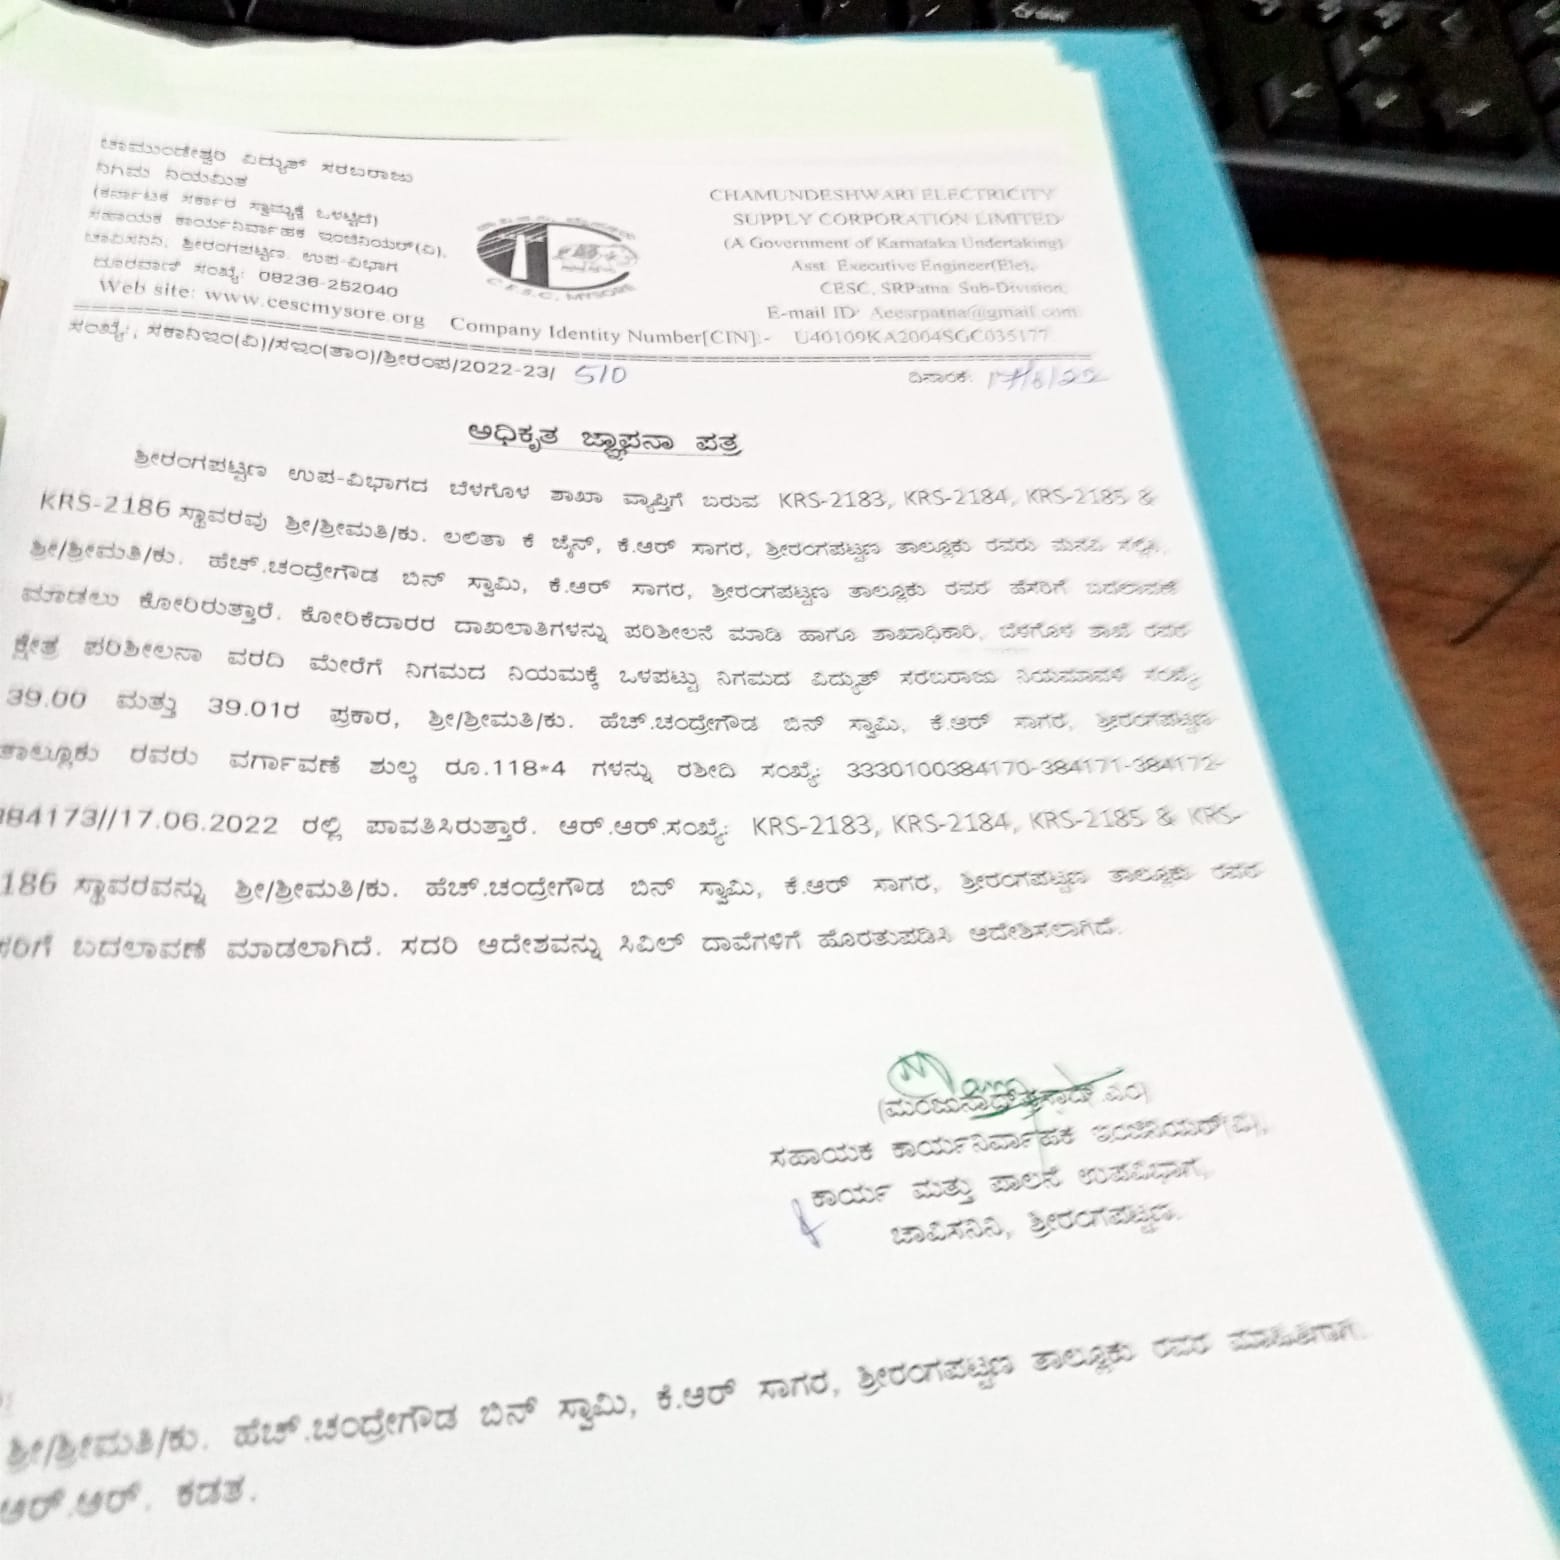 ಚಾಮುಂಡೇಶ್ವರಿ ವಿದ್ಯುತ್ ಸರಬರಾಜು
ನಿಗಮ ನಿಯಮಿತ
(ಕರ್ನಾಟಕ ಸರ್ಕಾರ ಸ್ವಾಮ್ಯಕ್ಕೆ ಒಳಪಟ್ಟಿದೆ)
ಸಹಾಯಕ ಕಾರ್ಯನಿರ್ವಾಹಕ ಇಂಜಿನಿಯರ್(ವಿ),
ಚಾವಿಸನಿನಿ, ಶ್ರೀರಂಗಪಟ್ಟಣ. ಉಪ-ವಿಭಾಗ
ದೂರವಾಣಿ ಸಂಖ್ಯೆ: 08236-252040
Web site: www.cescmysore.org
C.E.S.C, MYSORE
CHAMUNDESHWARI ELECTRICITY
SUPPLY CORPORATION LIMITED
(A Government of Karnataka Undertaking)
Asst. Executive Engineer(Ele),
CESC, SRPatna Sub-Division,
E-mail ID: Aeesrpatna@gmail.com
Company Identity Number[CIN]:- U40109KA2004SGC035177
ಸಂಖ್ಯೆ:, ಸಕಾನಿಇಂ(ವಿ)/ಸಇಂ(ತಾಂ)/ಶ್ರೀರಂಪ/2022-23/ 510 ದಿನಾಂಕ: 17/6/22
ಅಧಿಕೃತ ಜ್ಞಾಪನಾ ಪತ್ರ
ಶ್ರೀರಂಗಪಟ್ಟಣ ಉಪ-ವಿಭಾಗದ ಬೆಳಗೊಳ ಶಾಖಾ ವ್ಯಾಪ್ತಿಗೆ ಬರುವ KRS-2183, KRS-2184, KRS-2185 &
KRS-2186 ಸ್ಥಾವರವು ಶ್ರೀ/ಶ್ರೀಮತಿ/ಕು. ಲಲಿತಾ ಕೆ ಜೈನ್, ಕೆ.ಆರ್ ಸಾಗರ, ಶ್ರೀರಂಗಪಟ್ಟಣ ತಾಲ್ಲೂಕು ರವರು ಮನವಿ ಸಲ್ಲಿಸಿ,
ಶ್ರೀ/ಶ್ರೀಮತಿ/ಕು. ಹೆಚ್.ಚಂದ್ರೇಗೌಡ ಬಿನ್ ಸ್ವಾಮಿ, ಕೆ.ಆರ್ ಸಾಗರ, ಶ್ರೀರಂಗಪಟ್ಟಣ ತಾಲ್ಲೂಕು ರವರ ಹೆಸರಿಗೆ ಬದಲಾವಣೆ
ಮಾಡಲು ಕೋರಿರುತ್ತಾರೆ. ಕೋರಿಕೆದಾರರ ದಾಖಲಾತಿಗಳನ್ನು ಪರಿಶೀಲನೆ ಮಾಡಿ ಹಾಗೂ ಶಾಖಾಧಿಕಾರಿ, ಬೆಳಗೊಳ ಶಾಖೆ ರವರ
ಕ್ಷೇತ್ರ ಪರಿಶೀಲನಾ ವರದಿ ಮೇರೆಗೆ ನಿಗಮದ ನಿಯಮಕ್ಕೆ ಒಳಪಟ್ಟು ನಿಗಮದ ವಿದ್ಯುತ್ ಸರಬರಾಜು ನಿಯಮಾವಳಿ ಸಂಖ್ಯೆ
39.00 ಮತ್ತು 39.01ರ ಪ್ರಕಾರ, ಶ್ರೀ/ಶ್ರೀಮತಿ/ಕು. ಹೆಚ್.ಚಂದ್ರೇಗೌಡ ಬಿನ್ ಸ್ವಾಮಿ, ಕೆ.ಆರ್ ಸಾಗರ, ಶ್ರೀರಂಗಪಟ್ಟಣ
ತಾಲ್ಲೂಕು ರವರು ವರ್ಗಾವಣೆ ಶುಲ್ಕ ರೂ.118*4 ಗಳನ್ನು ರಶೀದಿ ಸಂಖ್ಯೆ: 3330100384170-384171-384172-
384173//17.06.2022 ರಲ್ಲಿ ಪಾವತಿಸಿರುತ್ತಾರೆ. ಆರ್.ಆರ್.ಸಂಖ್ಯೆ: KRS-2183, KRS-2184, KRS-2185 & KRS-
186 ಸ್ಥಾವರವನ್ನು ಶ್ರೀ/ಶ್ರೀಮತಿ/ಕು. ಹೆಚ್.ಚಂದ್ರೇಗೌಡ ಬಿನ್ ಸ್ವಾಮಿ, ಕೆ.ಆರ್ ಸಾಗರ, ಶ್ರೀರಂಗಪಟ್ಟಣ ತಾಲ್ಲೂಕು ರವರ
ಸರಿಗೆ ಬದಲಾವಣೆ ಮಾಡಲಾಗಿದೆ. ಸದರಿ ಆದೇಶವನ್ನು ಸಿವಿಲ್ ದಾವೆಗಳಿಗೆ ಹೊರತುಪಡಿಸಿ ಆದೇಶಿಸಲಾಗಿದೆ.
(ಮಂಜುನಾಥ್ ಪ್ರಸಾದ್ .ಎಂ)
ಸಹಾಯಕ ಕಾರ್ಯನಿರ್ವಾಹಕ ಇಂಜಿನಿಯರ್(ವಿ),
ಕಾರ್ಯ ಮತ್ತು ಪಾಲನೆ ಉಪವಿಭಾಗ,
ಚಾವಿಸನಿನಿ, ಶ್ರೀರಂಗಪಟ್ಟಣ.
ಶ್ರೀ/ಶ್ರೀಮತಿ/ಕು. ಹೆಚ್.ಚಂದ್ರೇಗೌಡ ಬಿನ್ ಸ್ವಾಮಿ, ಕೆ.ಆರ್ ಸಾಗರ, ಶ್ರೀರಂಗಪಟ್ಟಣ ತಾಲ್ಲೂಕು ರವರ ಮಾಹಿತಿಗಾಗಿ.
ಆರ್.ಆರ್. ಕಡತ.